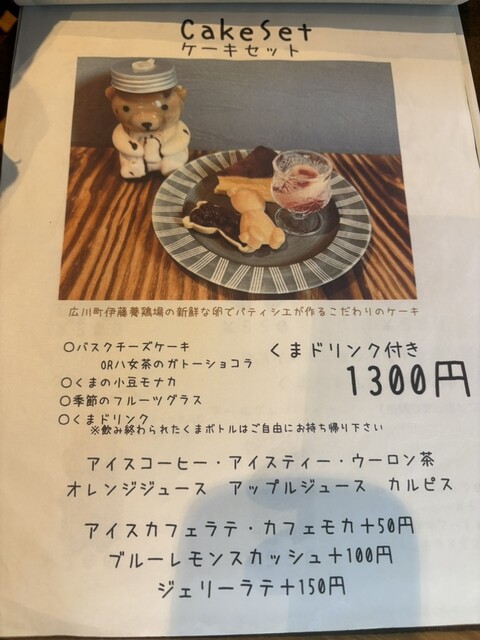 CakeSet
ケーキセット
広川町伊藤養鶏場の新鮮な卵でパティシエが作るこだわりのケーキ
〇バスクチーズケーキ
OR八女茶のガトーショコラ
〇くまの小豆モナカ
〇季節のフルーツグラス
〇くまドリンク
※飲み終わられたくまボトルはご自由にお持ち帰り下さい
くまドリンク付き
1300円
アイスコーヒー・アイスティー・ウーロン茶
オレンジジュース アップルジュース カルピス
アイスカフェラテ・カフェモカ+50円
ブルーレモンスカッシュ+100円
ジェリーラテ+150円